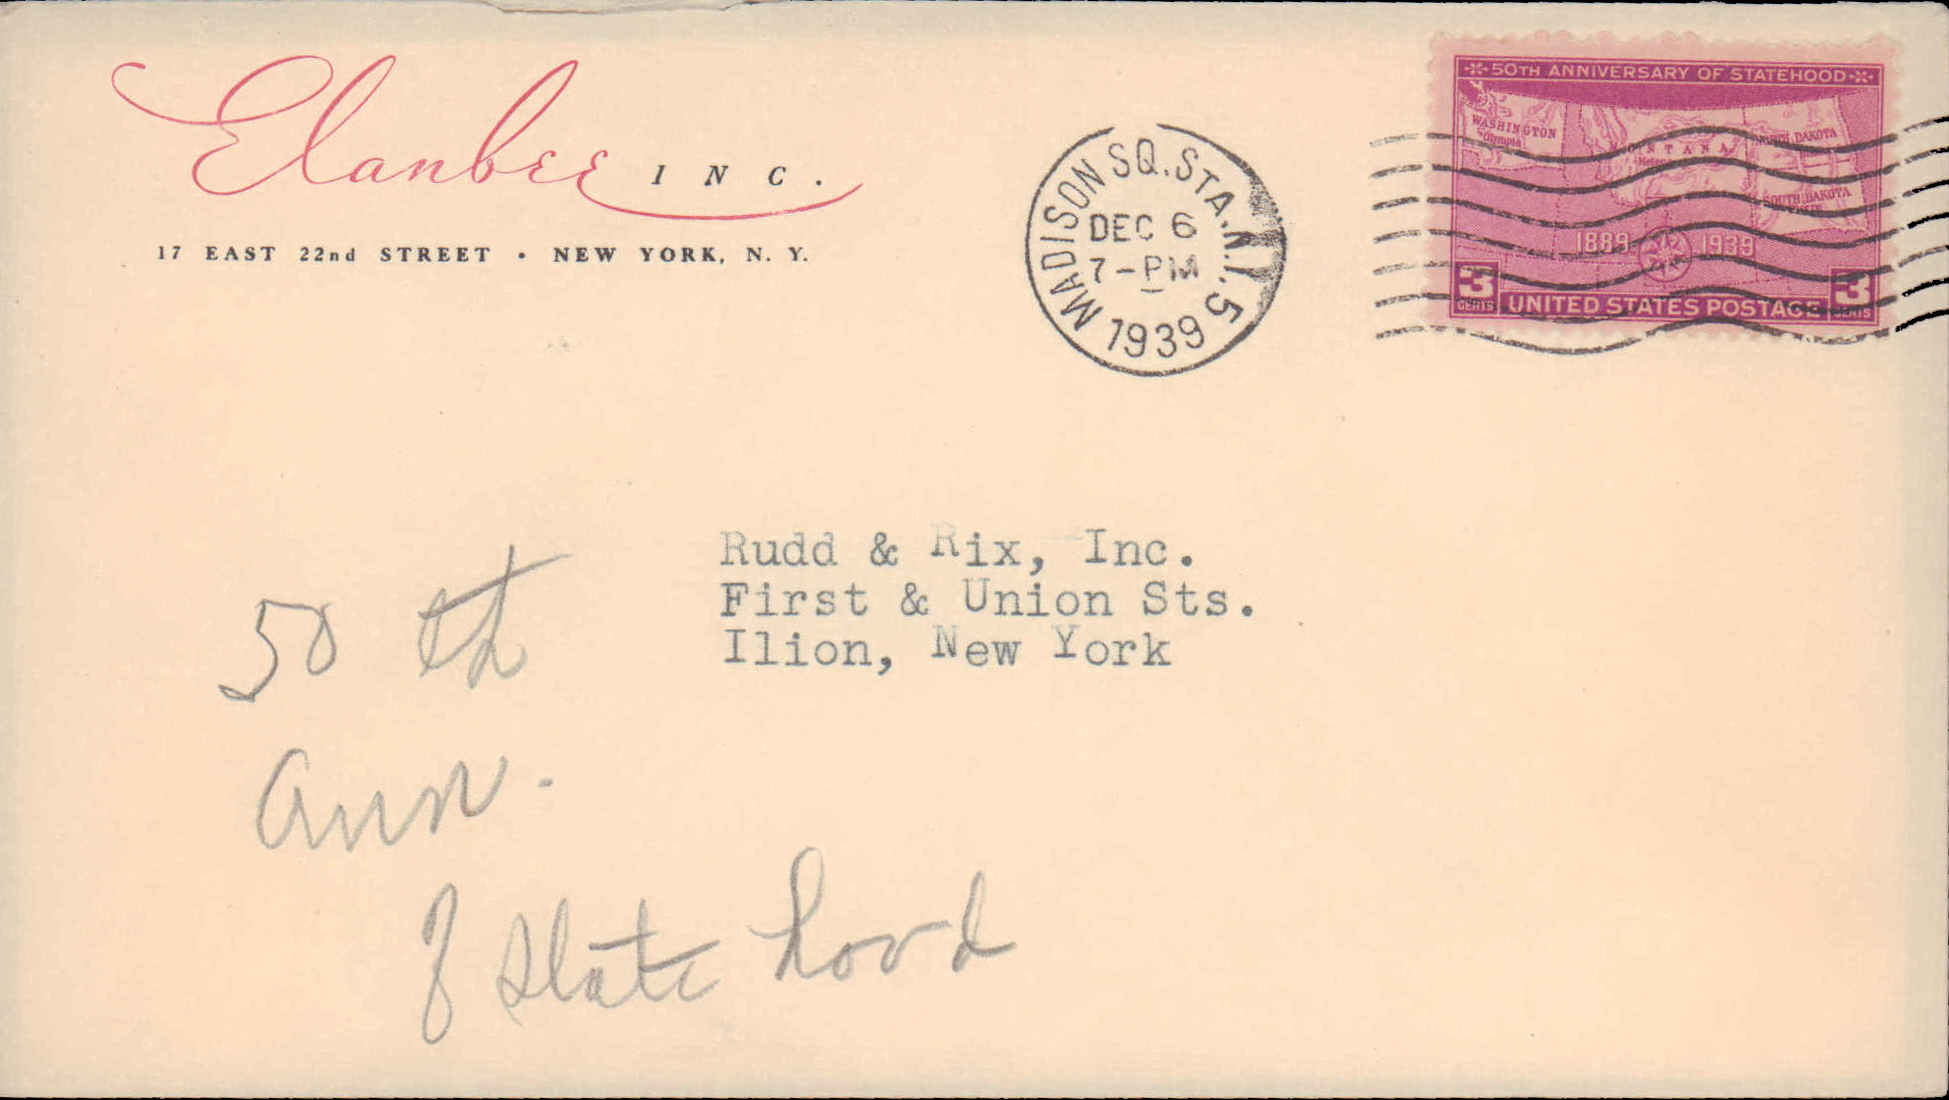 Elanbee INC.
17 EAST 22nd STREET • NEW YORK, N. Y.
MADISON SQ. STA. N.Y. 5
DEC 6
7-PM
1939
50TH ANNIVERSARY OF STATEHOOD
WASHINGTON
Olympia
MONTANA
Helena
NORTH DAKOTA
SOUTH DAKOTA
1889 1939
3 CENTS UNITED STATES POSTAGE 3 CENTS
Rudd & Rix, Inc.
First & Union Sts.
Ilion, New York
50 th
ann.
of State hood